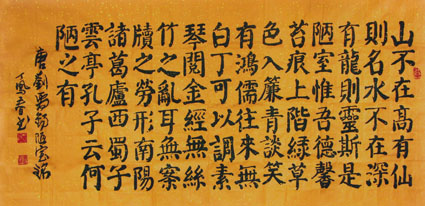 山不在高有仙
則名水不在深
有龍則靈斯是
陋室惟吾德馨
苔痕上階綠草
色入簾青談笑
有鴻儒往來無
白丁可以調素
琴閱金經無絲
竹之亂耳無案
牘之勞形南陽
諸葛廬西蜀子
雲亭孔子云何
陋之有
唐劉禹錫陋室銘
丁鳳春书